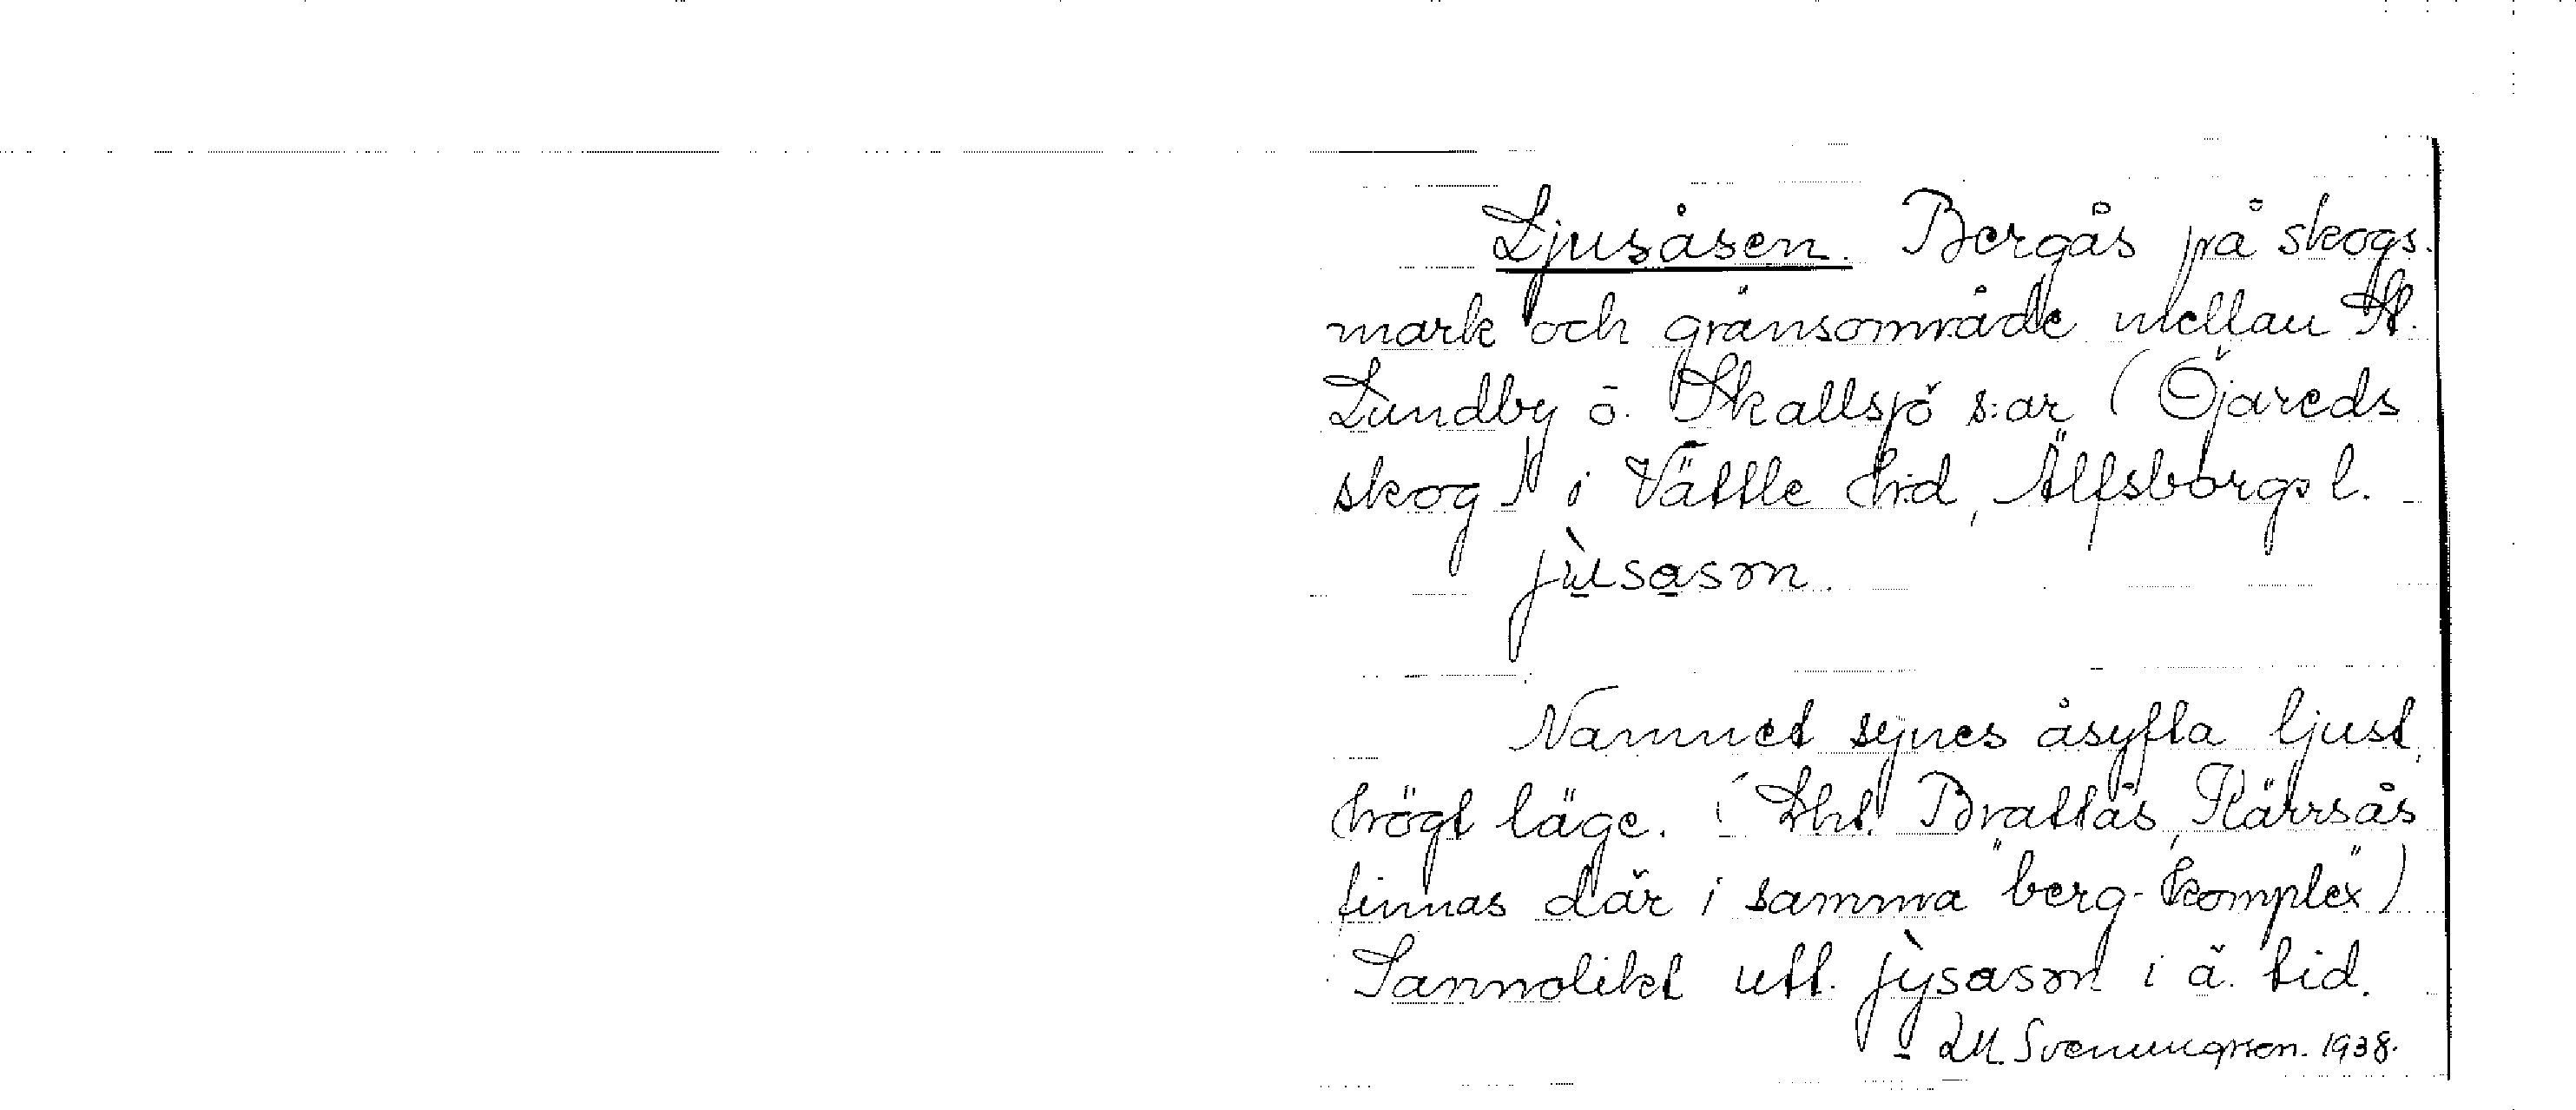 Ljusåsen. Bergås på skogs-
mark och gränsområde mellan St.
Lundby o. Skallsjö s:ar (Öjareds
skog) i Vättle hd, Älfsborgs l.
jùsåsən.
Namnet synes åsyfta ljust,
högt läge. (Äht. Brattås, Kärrsås
finnas där i samma "berg-komplex")
Sannolikt utt. jỳsåsən i ä. tid.
LM. Svenungsson. 1938.